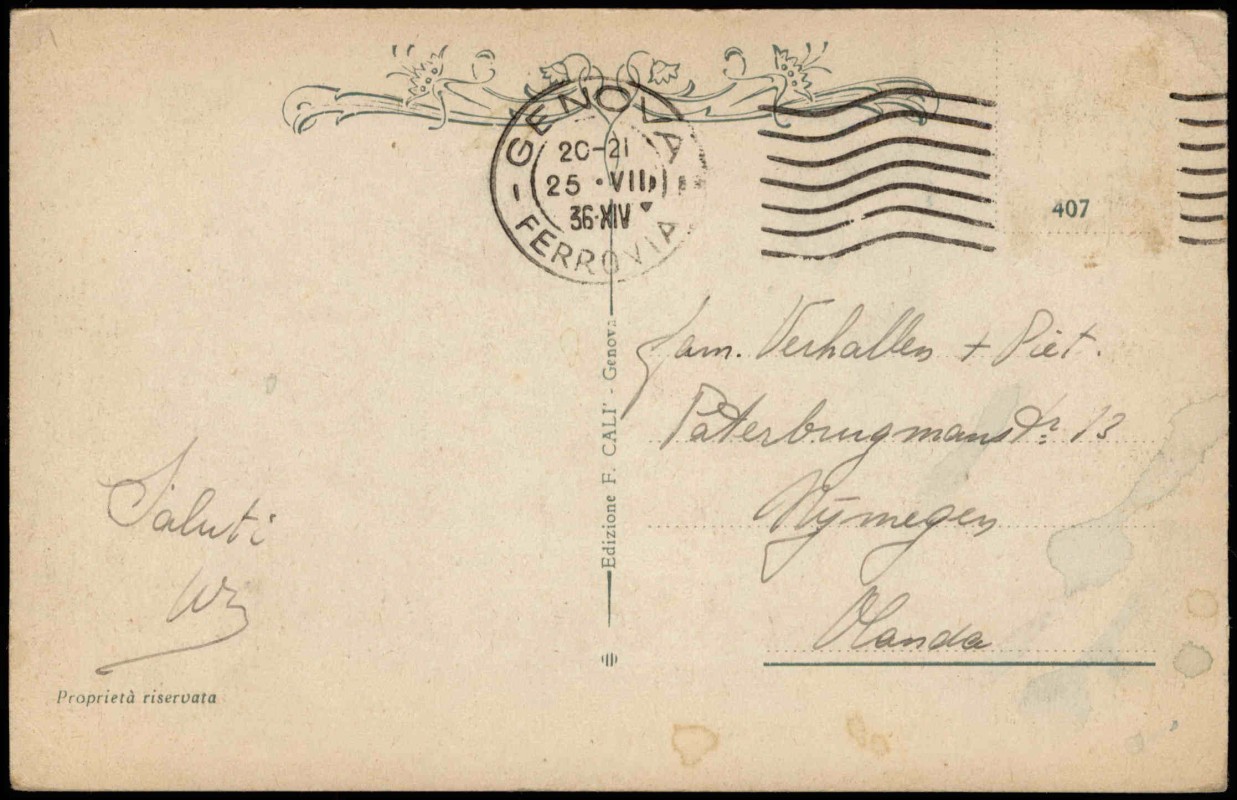 GENOVA
20-21
25 · VII
36·XIV
FERROVIA
407
Fam. Verhallen + Piet.
Paterbrugmanstr. 13
Nijmegen
Olanda
Edizione F. CALI' - Genova
Saluti
Proprietà riservata